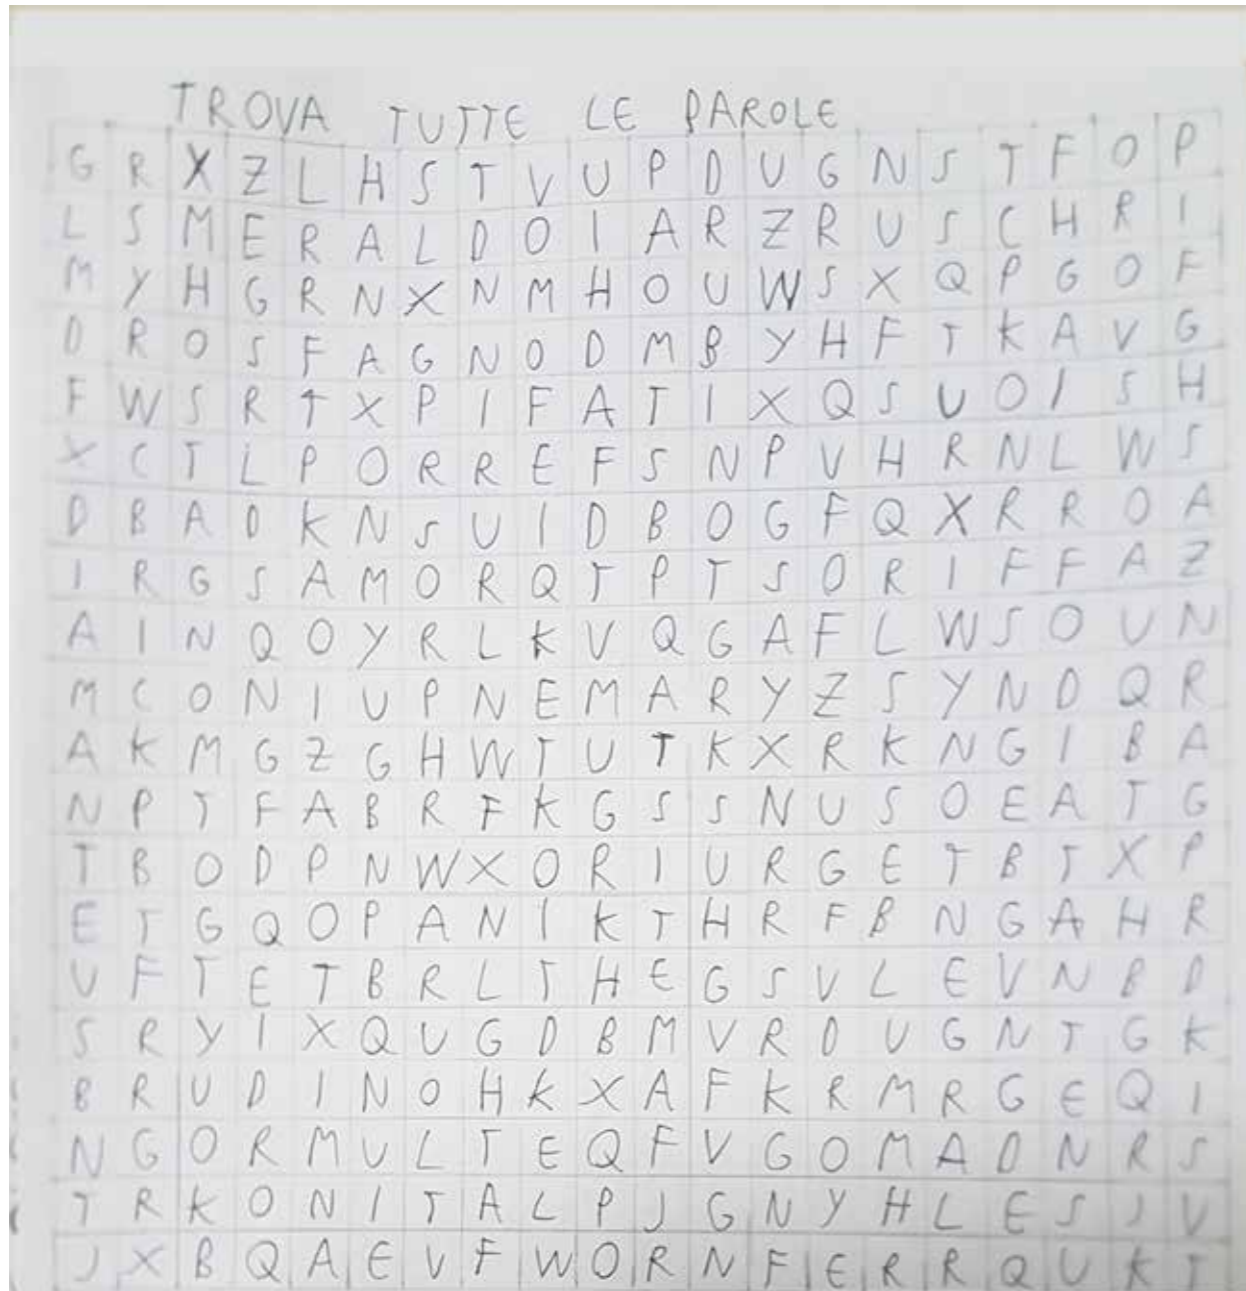 TROVA TUTTE LE PAROLE
G R X Z L H S T V U P D U G N S T F O P
L S M E R A L D O I A R Z R U S C H R I
M Y H G R N X N M H O U W S X Q P G O F
D R O S F A G N O D M B Y H F T K A V G
F W S R T X P I F A T I X Q S U O I S H
X C T L P O R R E F S N P V H R N L W S
D B A D K N S U I D B O G F Q X R R O A
I R G S A M O R Q T P T S O R I F F A Z
A I N Q O Y R L K V Q G A F L W S O U N
M C O N I U P N E M A R Y Z S Y N D Q R
A K M G Z G H W T U T K X R K N G I B A
N P T F A B R F K G S S N U S O E A T G
T B O D P N W X O R I U R G E T B T X P
E T G Q O P A N I K T H R F B N G A H R
U F T E T B R L T H E G S V L E V N B D
S R Y I X Q U G D B M V R D U G N T G K
B R U D I N O H K X A F K R M R G E Q I
N G O R M U L T E Q F V G O M A D N R S
T R K O N I T A L P J G N Y H L E S J V
J X B Q A E V F W O R N F E R R Q U K T